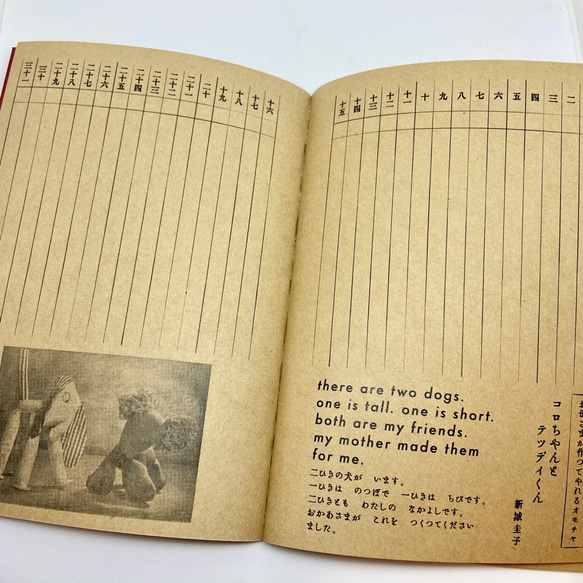 二
三
四
五
六
七
八
九
十
十一
十二
十三
十四
十五
十六
十七
十八
十九
二十
二十一
二十二
二十三
二十四
二十五
二十六
二十七
二十八
二十九
三十
三十一
が作つてやれるオモチヤ
コロちやんと
テツデイくん
新城圭子
there are two dogs.
one is tall. one is short.
both are my friends.
my mother made them
for me.
二ひきの犬が います。
一ひきは のつぽで 一ひきは ちびです。
二ひきとも わたしの なかよしです。
おかあさまが これを つくつてください
ました。